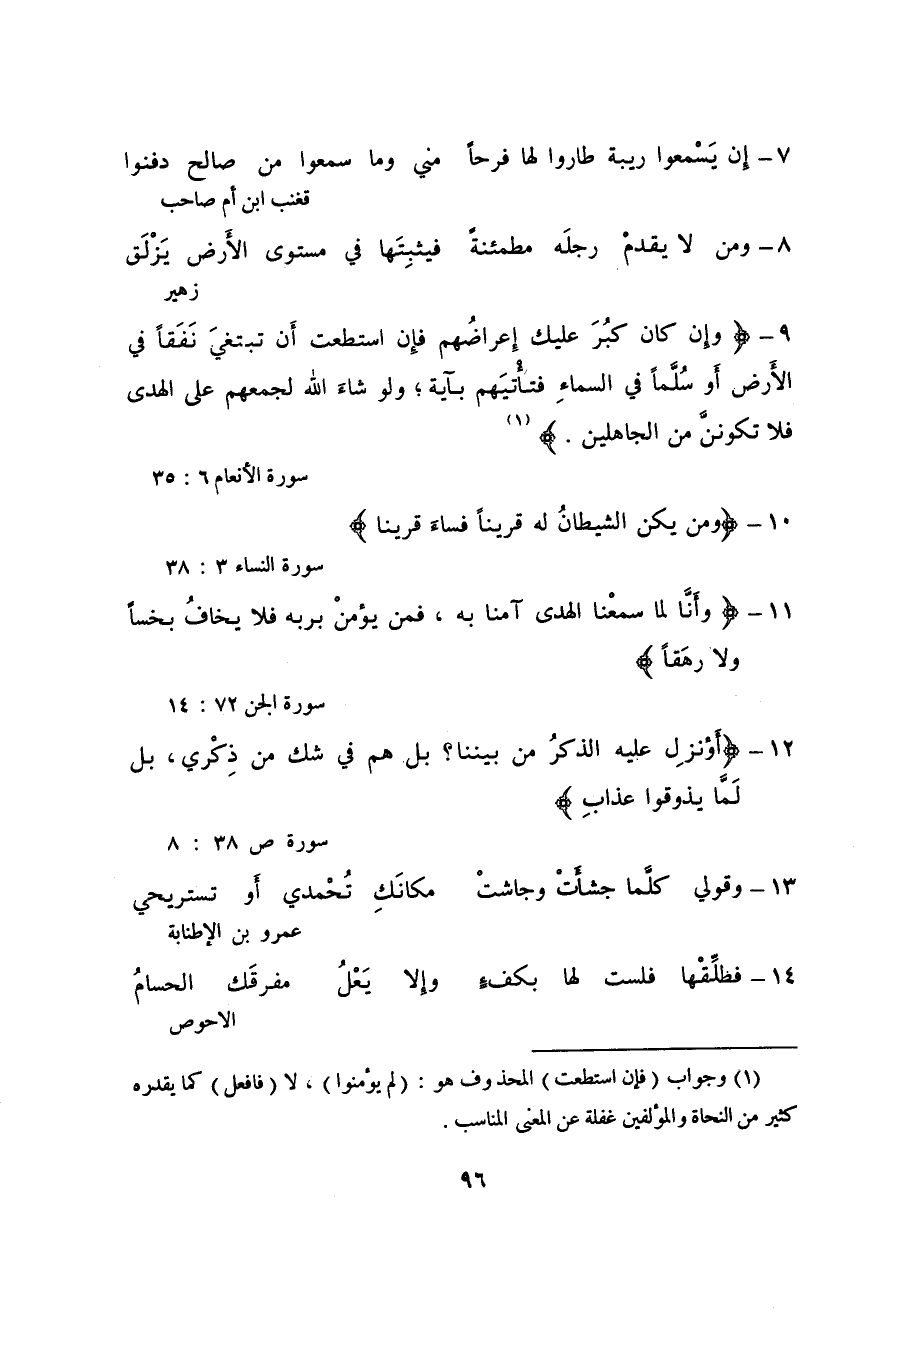 ٧ – إِن يَسْمعوا ريبة طاروا لها فرحاً   مني وما سمعوا من صالح دفنوا
قغنب ابن أم صاحب
٨ – ومن لا يقدمْ رجلَه مطمئنةً   فيثبِتَها في مستوى الأَرض يَزْلَق
زهير
٩ – ﴿ وإِن كان كبُرَ عليك إِعراضُهم فإِن استطعت أَن تبتغيَ نَفَقاً في
الأَرض أَو سُلَّماً في السماءِ فتأْتيَهم بآية ؛ ولو شاءَ الله لجمعهم على الهدى
فلا تكوننَّ من الجاهلين . ﴾ (١)
سورة الأنعام ٦ : ٣٥
١٠ – ﴿ومن يكن الشيطانُ له قريناً فساءَ قرينا ﴾
سورة النساء ٣ : ٣٨
١١ – ﴿ وأَنَّا لما سمعْنا الهدى آمنا به ، فمن يؤمنْ بربه فلا يخافُ بخساً
ولا رهَقاً ﴾
سورة الجن ٧٢ : ١٤
١٢ – ﴿أَؤنزِل عليه الذكرُ من بيننا؟ بل هم في شك من ذِكْري ، بل
لَمَّا يذوقوا عذابِ ﴾
سورة ص ٣٨ : ٨
١٣ – وقولي كلَّما جشأَتْ وجاشتْ   مكانَكِ تُحْمدي أَو تستريحي
عمرو بن الإطنابة
١٤ – فطلِّقْها فلست لها بكفءٍ   وإلا يَعْلُ مفرقَك الحسامُ
الاحوص
(١) وجواب ( فإن استطعت ) المحذوف هو : ( لم يؤمنوا ) ، لا ( فافعل ) كما يقدره
كثير من النحاة والمؤلفين غفلة عن المعنى المناسب .
٩٦